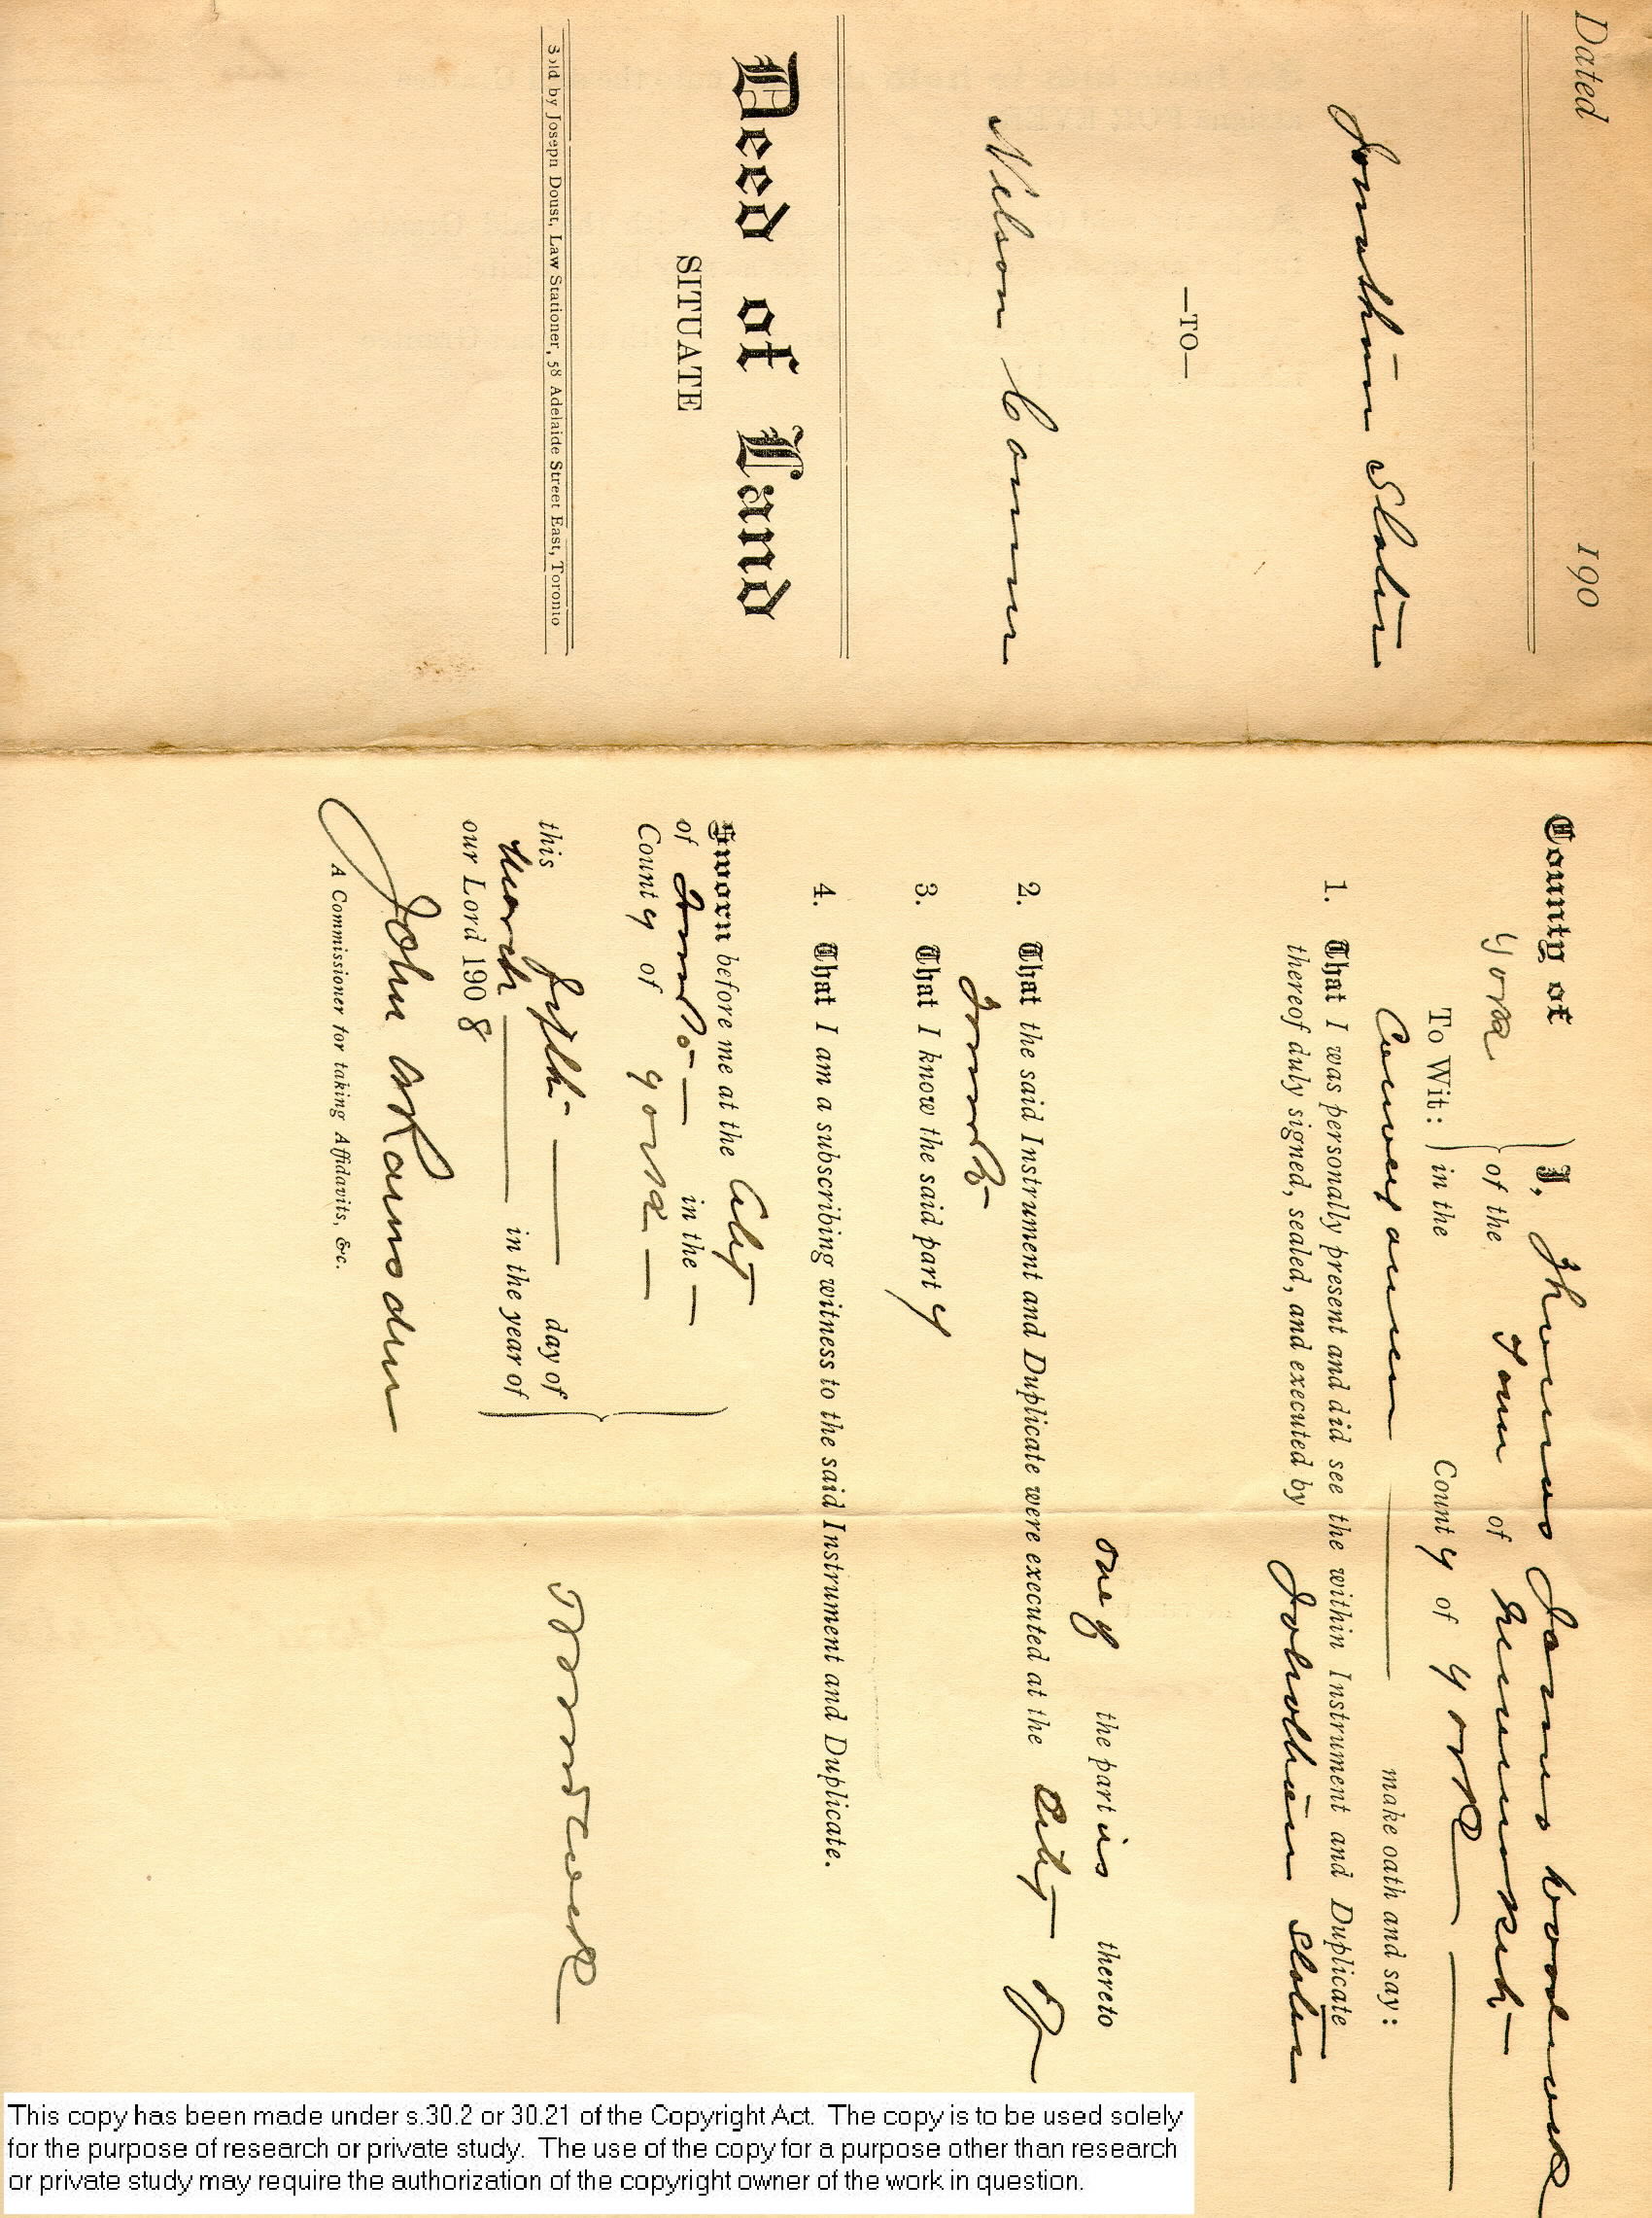 Dated 190
Jonathan Slater
—TO—
Nelson Conner
Deed of Land
SITUATE
Sold by Joseph Doust, Law Stationer, 58 Adelaide Street East, Toronto
County of I, Thomas James Woodcock
York of the Town of Newmarket
To Wit: in the County of York
Conveyancer make oath and say:
1. That I was personally present and did see the within Instrument and Duplicate
thereof duly signed, sealed, and executed by Jonathan Slater
one of the parties thereto
2. That the said Instrument and Duplicate were executed at the City of
Toronto
3. That I know the said party
4. That I am a subscribing witness to the said Instrument and Duplicate.
Sworn before me at the City
of Toronto in the
County of York
this fifth day of
March in the year of
our Lord 1908
John Ramsden
A Commissioner for taking Affidavits, &c.
This copy has been made under s.30.2 or 30.21 of the Copyright Act. The copy is to be used solely
for the purpose of research or private study. The use of the copy for a purpose other than research
or private study may require the authorization of the copyright owner of the work in question.